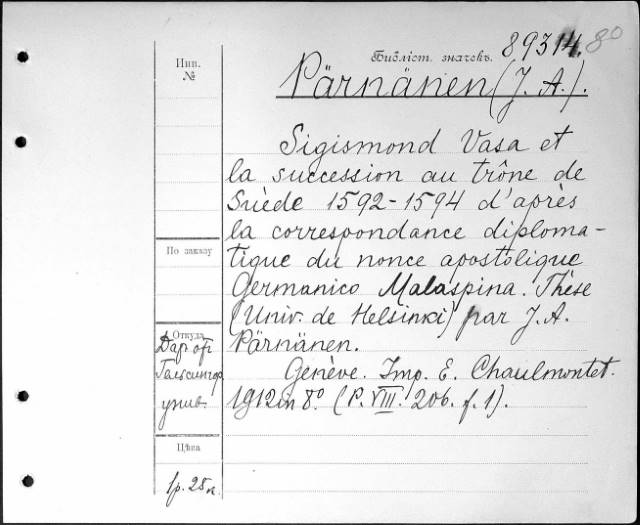 Библіот. значекъ. 89314. 80
Инв.
№
Pärnänen (J. A.).
Sigismond Vasa et
la succession au trône de
Suède 1592-1594 d'après
la correspondance diploma-
tique du nonce apostolique
Germanico Malaspina. Thèse
(Univ. de Helsinki) par J. A.
Pärnänen.
Genève. Imp. E. Chaulmontet.
1912 in 8º. (P. VIII. 206. f. 1).
По заказу
Откуда
Дар от
Гельсингфор.
унив.
Цѣна
1р. 25к.